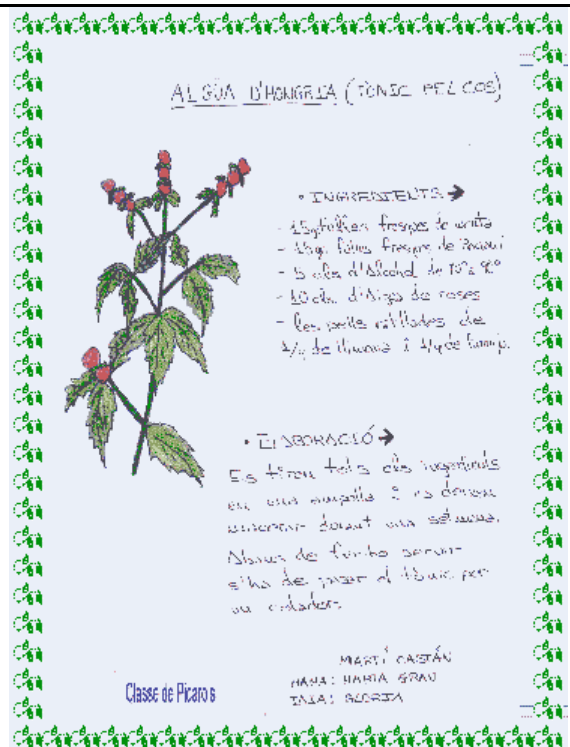 ALGÜA D'HONGRIA (TÒNIC PEL COS)
• INGREDIENTS →
- 15g fulles fresques de menta
- 15g. fulles fresques de
- 5 cls d'Alcohol de 90º
- 10 cls. d'Aigua de roses
- les pells rallades de
1/4 de llimona i 1/4 de taronja.
• ELABORACIÓ →
Es tiren tots els ingredients
en una ampolla i es deixen
macerar durant una setmana.
Abans de fer-ho servir
s'ha de passar el tònic per
un colador.
MARTÍ CASTÁN
MAMA: MARIA GRAU
IAIA: GLORIA
Classe de Picarols